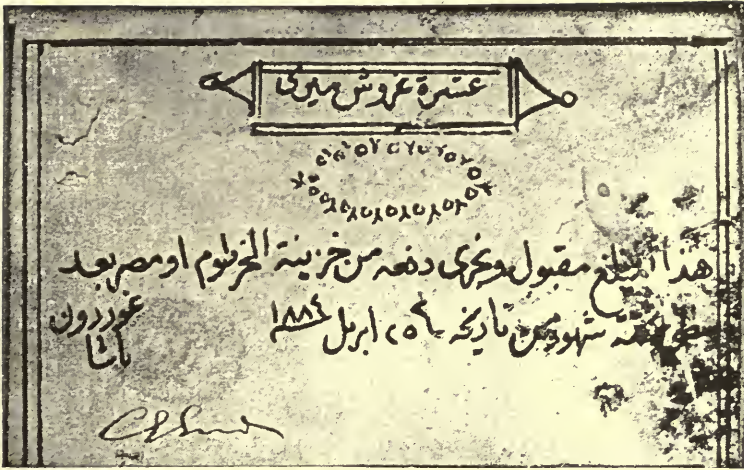 عشرة غروش ميرى
هذا المبلغ مقبول ويجرى دفعه من خزينة الخرطوم او مصر بعد
مضى شهور من تاريخه ٢٥ ابريل ١٨٨٤
غوردون
باشا